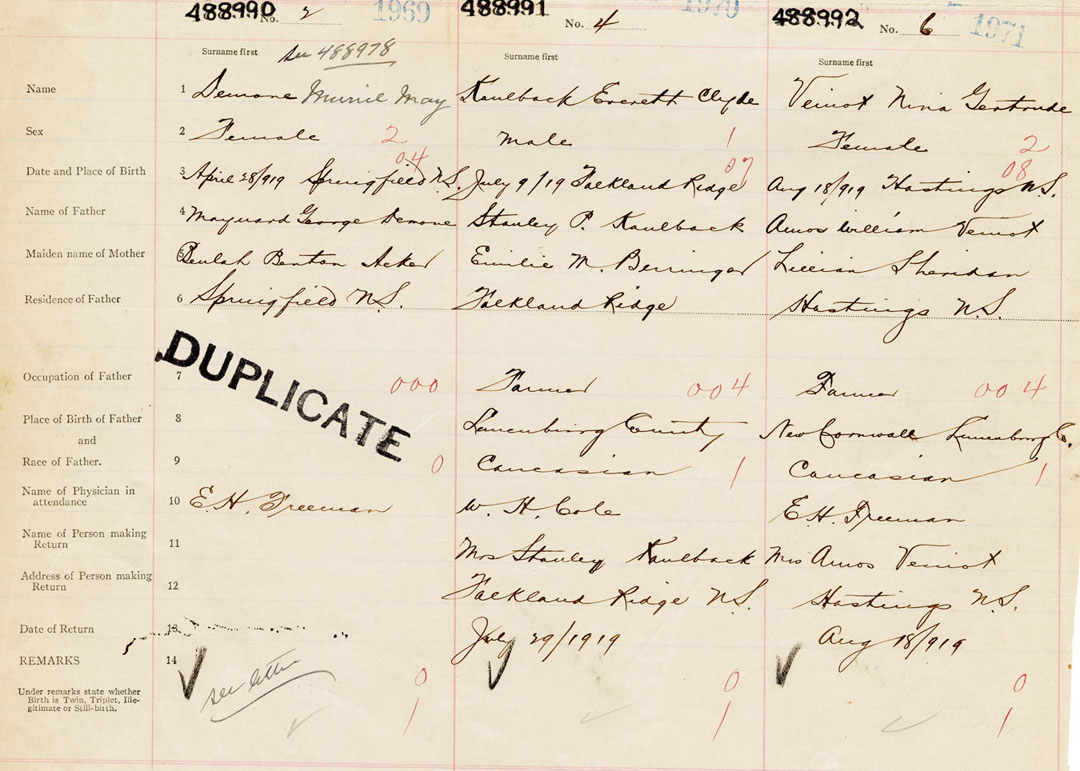 488990 No. 2 1969 488991 No. 4 1970 488992 No. 6 1971
Surname first see 488978 Surname first Surname first
Name 1 Demone Muriel May Kaulback Everett Clyde Veinot Nina Gertrude
Sex 2 Female 2 male 1 Female 2
04 07 08
Date and Place of Birth 3 April 28/919 Springfield N.S. July 9/19 Falkland Ridge Aug 18/919 Hastings N.S.
Name of Father 4 Maynard George Demone Stanley P. Kaulback Amos William Veinot
Maiden name of Mother 5 Beulah Benton Acker Emilie M. Berringer Lillian Sheridan
Residence of Father 6 Springfield N.S. Falkland Ridge Hastings N.S.
DUPLICATE
Occupation of Father 7 000 Farmer 004 Farmer 004
Place of Birth of Father 8 Lunenburg County New Cornwall Lunenburg Co.
and
Race of Father. 9 0 Caucasian 1 Caucasian 1
Name of Physician in
attendance 10 E. H. Freeman W. H. Cole E. H. Freeman
Name of Person making
Return 11 Mrs Stanley Kaulback Mrs Amos Veinot
Address of Person making
Return 12 Falkland Ridge N.S. Hastings N.S.
Date of Return 13 July 29/1919 Aug 18/919
REMARKS 14 see letter 0 0 0
Under remarks state whether
Birth is Twin, Triplet, Ille-
gitimate or Still-birth. 1 1 1